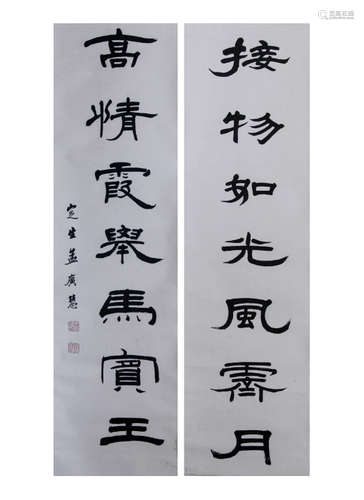 接物如光風霽月
高情霞舉馬賓王
定生孟廣慧